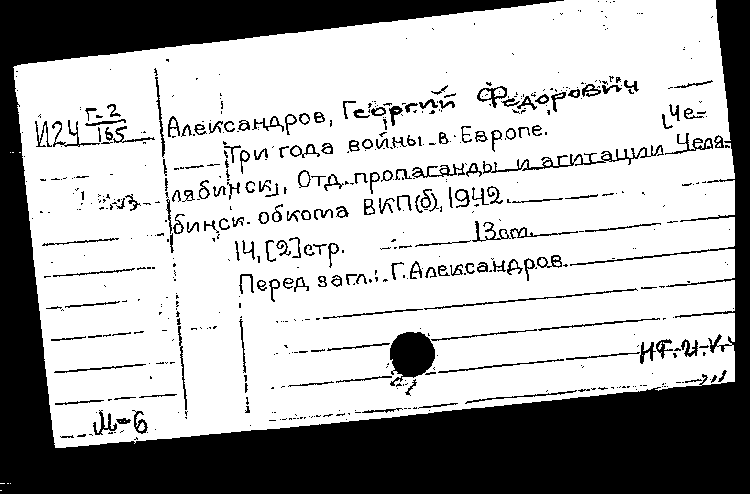 И24 Г-2/165
Александров, Георгий Федорович
Три года войны в Европе. [Че-
лябинск], Отд. пропаганды и агитации Челя-
бинск. обкома ВКП(б), 1942.
14, [2] стр. 13 см.
Перед загл.: Г. Александров.
М-6